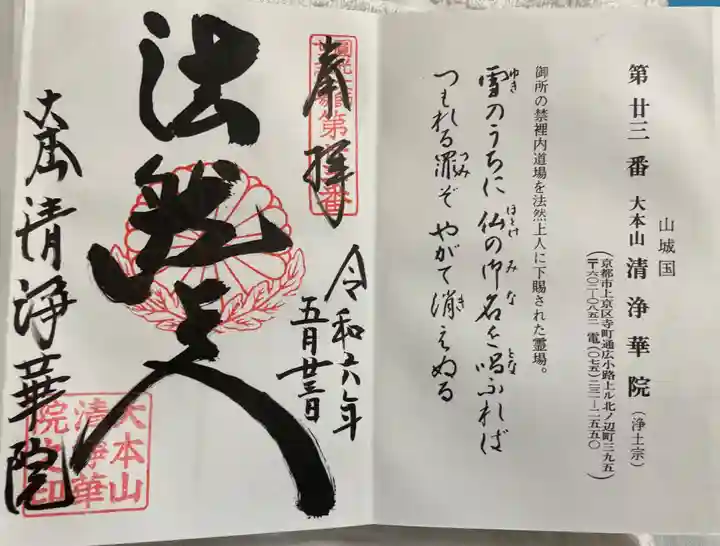 山城国
第廿三番 大本山 清浄華院(浄土宗)
(京都市上京区寺町通広小路上ル北ノ辺町三九五
〒六〇二-〇八五二 電(〇七五)二三一-二五五〇)
御所の禁裡内道場を法然上人に下賜された霊場。
雪のうちに 仏の御名を 唱ふれば
ゆき ほとけ みな とな
つもれる罪ぞ やがて消えぬる
つみ き
奉拝
令和六年
五月廿三日
法然上人
大本山 清浄華院
大本山
清浄華
院之印